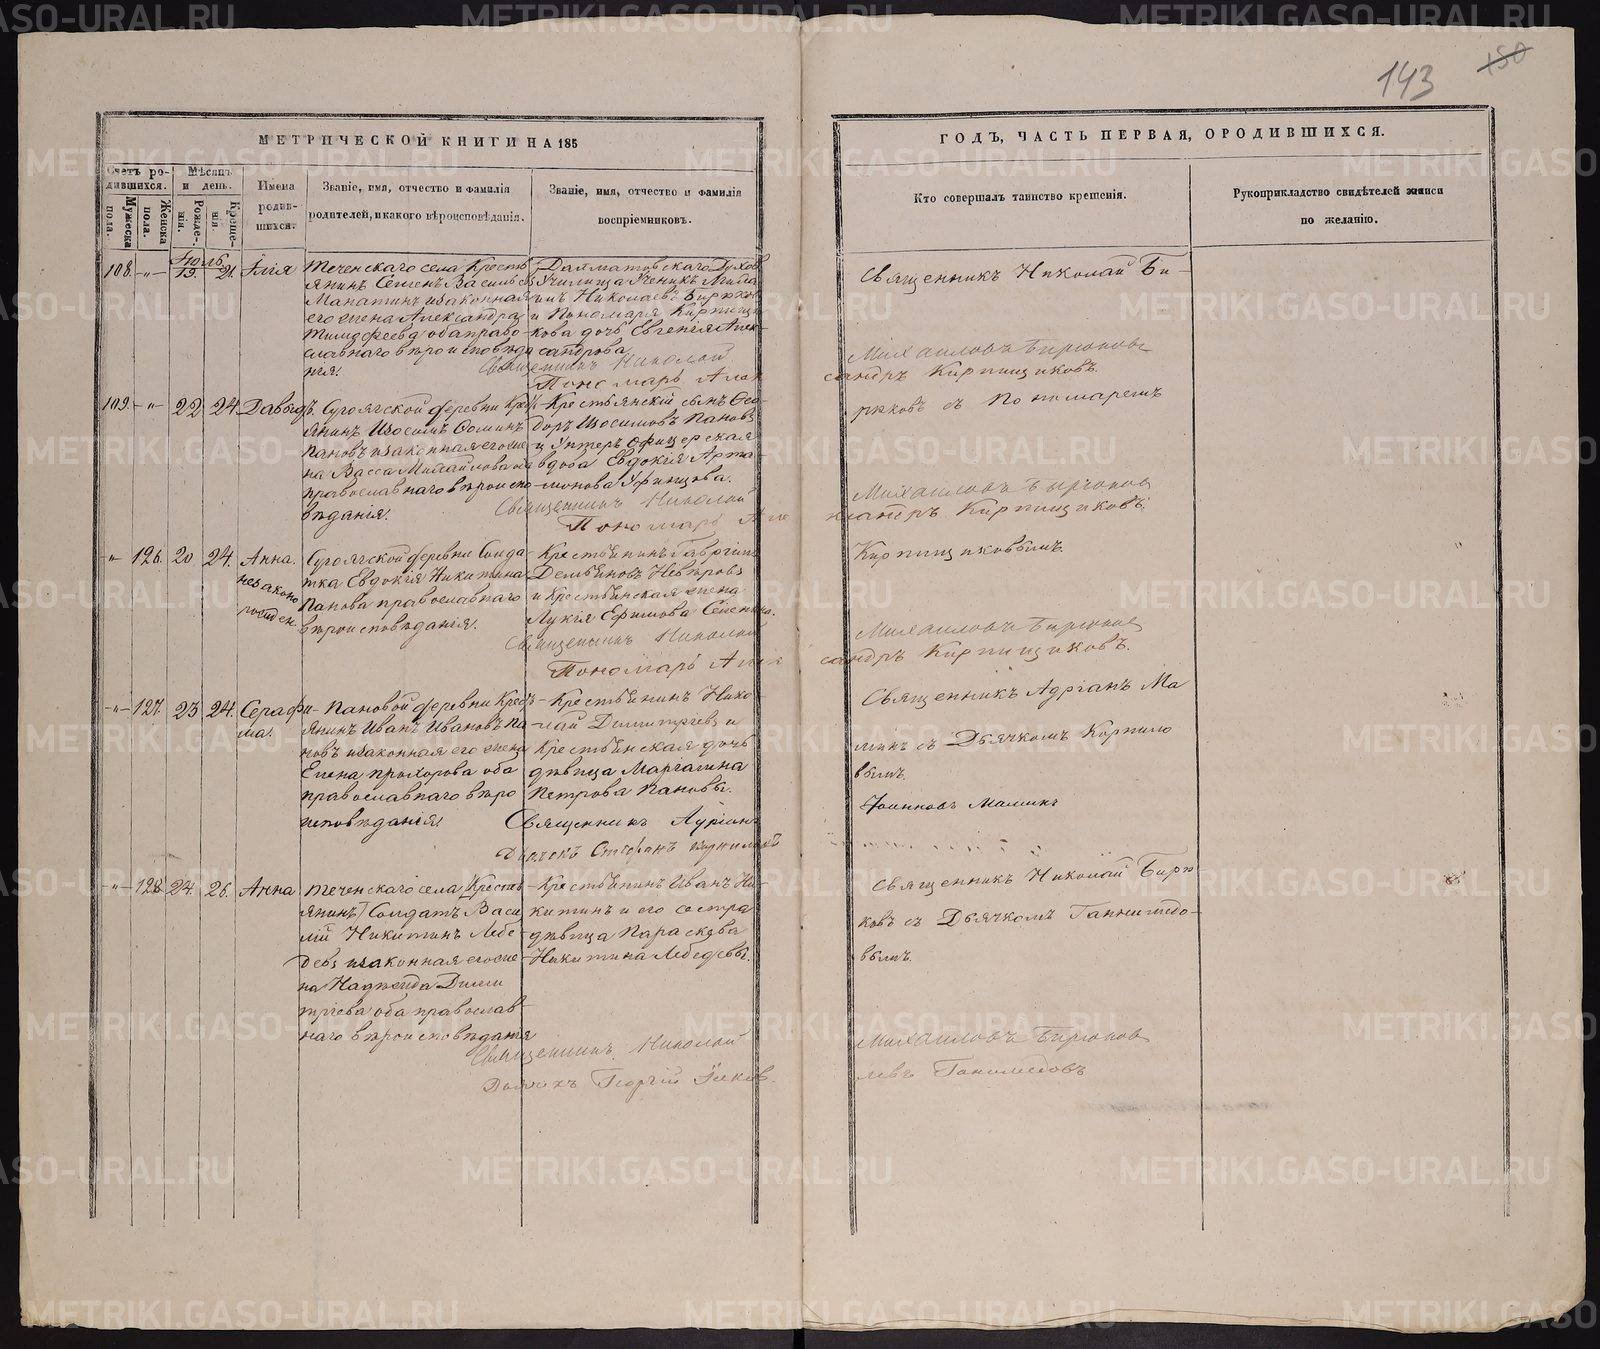 143
150
МЕТРИЧЕСКОЙ КНИГИ НА 185
ГОДЪ, ЧАСТЬ ПЕРВАЯ, О РОДИВШИХСЯ.
Счетъ родившихся.
Мужеска пола.
Женска пола.
Мѣсяцъ и день.
Рожденія.
Крещенія.
Имена родившихся.
Званіе, имя, отчество и фамилія
родителей, и какого вѣроисповѣданія.
Званіе, имя, отчество и фамилія
воспріемниковъ.
Кто совершалъ таинство крещенія.
Рукоприкладство свидѣтелей записи
по желанію.
Іюль
108. -„- 19 21. Илія
Теченскаго села Кресть
янинъ Семенъ Василь
Манатинъ и законная
его жена Александра
Тимофеева оба право-
славнаго вѣроисповѣда
нія.
Далматовскаго Духов
Училища Ученикъ Миха
илъ Николаевъ Бирюков
и Пономаря Кирпищи
кова дочь Евгенія Алек-
сандрова
Священникъ Николай
Пономарь Алек
Священникъ Николай Би-
Михаиловъ Бирюковъ
сандръ Кирпищиковъ.
109. -„- 22 24. Давыдъ.
Сугоякской деревни Кре
янинъ Изосимъ Ѳоминъ
Пановъ и законная его же
на Васса Михайлова оба
православнаго вѣроиспо-
вѣданія.
Крестьянскій сынъ Ѳео-
доръ Изосимовъ Пановъ
и Унтеръ Офицерская
вдова Евдокія Арта-
монова Уфинцова.
Священникъ Николай
Пономарь Але
рюковъ съ Пономаремъ
Михаиловъ Бирюковъ
ксандръ Кирпищиковъ.
-„- 126. 20 24. Анна.
незаконо
рожден.
Сугоякской деревни Солда-
тка Евдокія Никитина
Панова православнаго
вѣроисповѣданія.
Крестьянинъ Гавріилъ
Дементьевъ Невѣровъ
и Крестьянская жена
Лукія Ефимова
Священникъ Николай
Пономарь Алек
Кирпищиковымъ.
Михаиловъ Бирюковъ
сандръ Кирпищиковъ.
-„- 127. 23 24. Серафи-
ма.
Пановой деревни Крест
янинъ Иванъ Ивановъ Па
новъ и законная его жена
Елена Прохорова оба
православнаго вѣро
исповѣданія.
Крестьянинъ Нико-
лай Димитріевъ и
Крестьянская дочь
дѣвица Маргарита
Петрова Пановы.
Священникъ Адріанъ
Дьячекъ Стефанъ Корниловъ
Священникъ Адріанъ Ма
минъ съ Дьячкомъ Корнило
вымъ.
Іоанновъ Маминъ
-„- 128 24. 26. Анна
Теченскаго села Кресть
янинъ Солдатъ Васи
лій Никитинъ Лебе-
девъ и законная его же
на Надежда Дими
тріева оба православ
наго вѣроисповѣданія
Крестьянинъ Иванъ Ни-
китинъ и его сестра
дѣвица Параскева
Никитина Лебедевы.
Священникъ Николай
Дьячекъ Георгій
Священникъ Николай Бирю
ковъ съ Дьячкомъ Ганимедо-
вымъ.
Михаиловъ Бирюковъ
левъ Ганимедовъ
METRIKI.GASO-URAL.RU